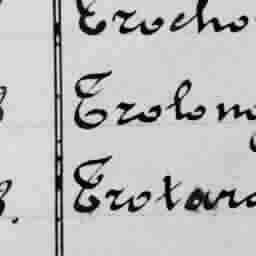 Trocho
Trolong
Trotard